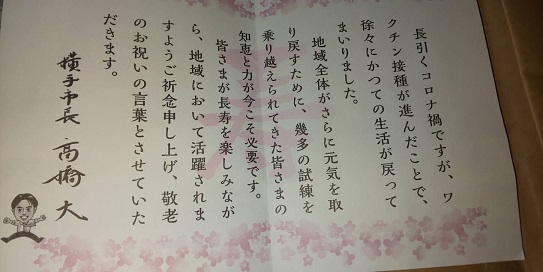 長引くコロナ禍ですが、ワ
クチン接種が進んだことで、
徐々にかつての生活が戻って
まいりました。
地域全体がさらに元気を取
り戻すために、幾多の試練を
乗り越えられてきた皆さまの
知恵と力が今こそ必要です。
皆さまが長寿を楽しみなが
ら、地域において活躍されま
すようご祈念申し上げ、敬老
のお祝いの言葉とさせていた
だきます。
横手市長 高橋 大